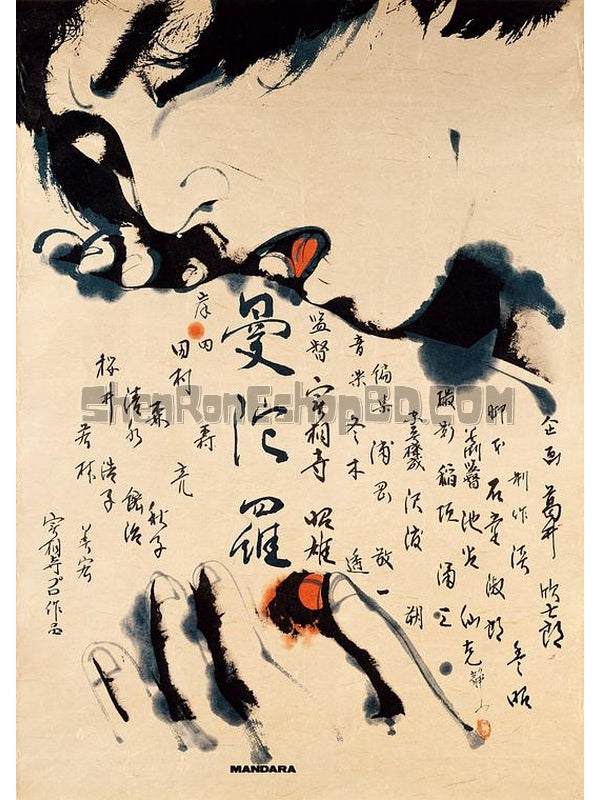 企画 葛井欣士郎
制作 淡 豊昭
脚本 石堂淑朗
美術監督 池谷仙克
撮影 稲垣涌三
沢渡 朔
編集 浦岡敬一
音楽 冬木 透
監督 實相寺昭雄
曼陀羅
岸田 森
田村 亮
森 秋子
清水 紘治
桜井 浩子
若林 美宏
実相寺プロ作品
静山
SheaRonEshopBD.COM
MANDARA